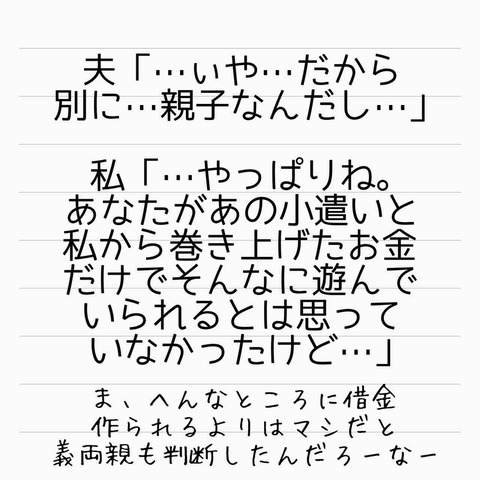 夫「…ぃや…だから
別に…親子なんだし…」
私「…やっぱりね。
あなたがあの小遣いと
私から巻き上げたお金
だけでそんなに遊んで
いられるとは思って
いなかったけど…」
ま、へんなところに借金
作られるよりはマシだと
義両親も判断したんだろーなー